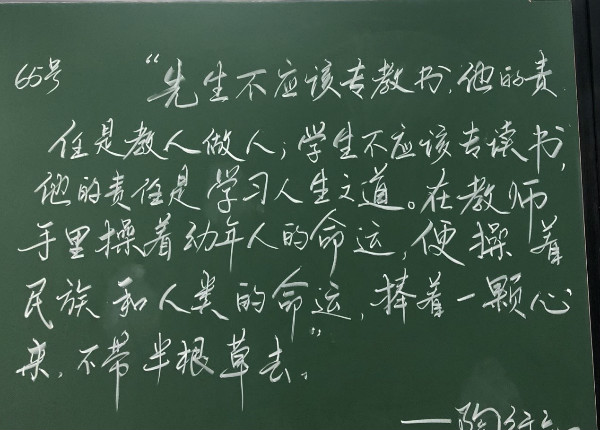 65号 “先生不应该专教书,他的责
任是教人做人;学生不应该专读书,
他的责任是学习人生之道。在教师
手里操着幼年人的命运,便操着
民族和人类的命运,捧着一颗心
来,不带半根草去。”
——陶行知